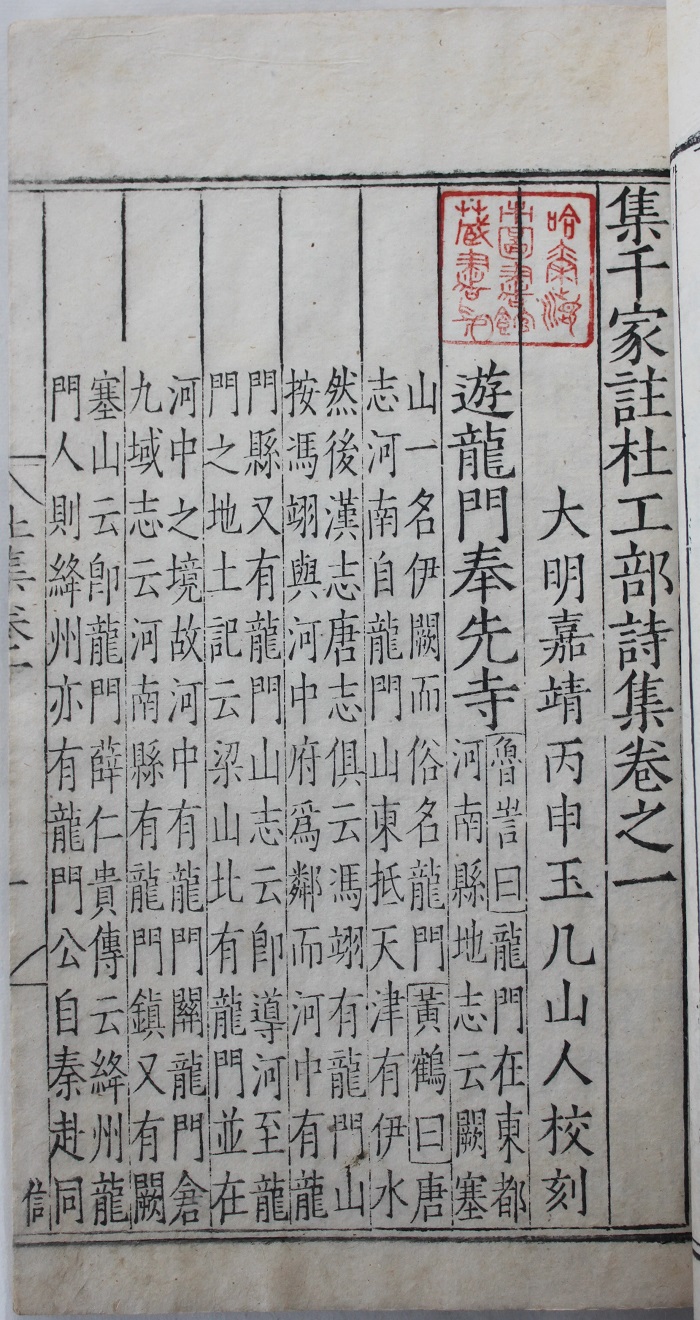 集千家註杜工部詩集卷之一
大明嘉靖丙申玉几山人校刻
遊龍門奉先寺
魯訔曰龍門在東都
河南縣地志云闕塞
山一名伊闕而俗名龍門黃鶴曰唐
志河南自龍門山東抵天津有伊水
然後漢志唐志俱云馮翊有龍門山
按馮翊與河中府爲鄰而河中有龍
門縣又有龍門山志云卽導河至龍
門之地土記云梁山北有龍門並在
河中之境故河中有龍門關龍門倉
九域志云河南縣有龍門鎮又有闕
塞山云卽龍門薛仁貴傳云絳州龍
門人則絳州亦有龍門公自秦赴同
上集卷一
一
信
哈爾濱
市圖書館
藏書印